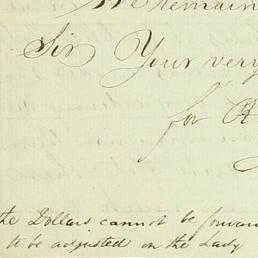 We remain
Sir Your very
for
the Dollars cannot be forwar
to be adjusted on the Lady